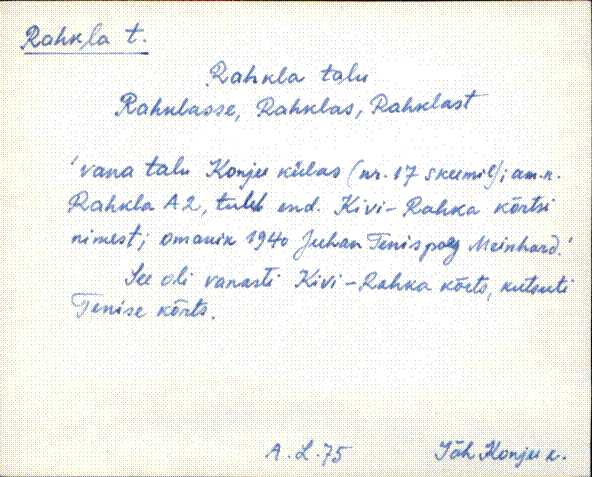 Rahkla t.
Rahkla talu
Rahklasse, Rahklas, Rahklast
'vana talu Konju külas (nr. 17 skeemil); am.n.
Rahkla A2, tuleb end. Kivi-Rahka kõrtsi
nimest; omanik 1940 Juhan Tenispoeg Meinhard.'
See oli vanasti Kivi-Rahka kõrts, kutsuti
Tenise kõrts.
A.L.75 Jõh Konju k.